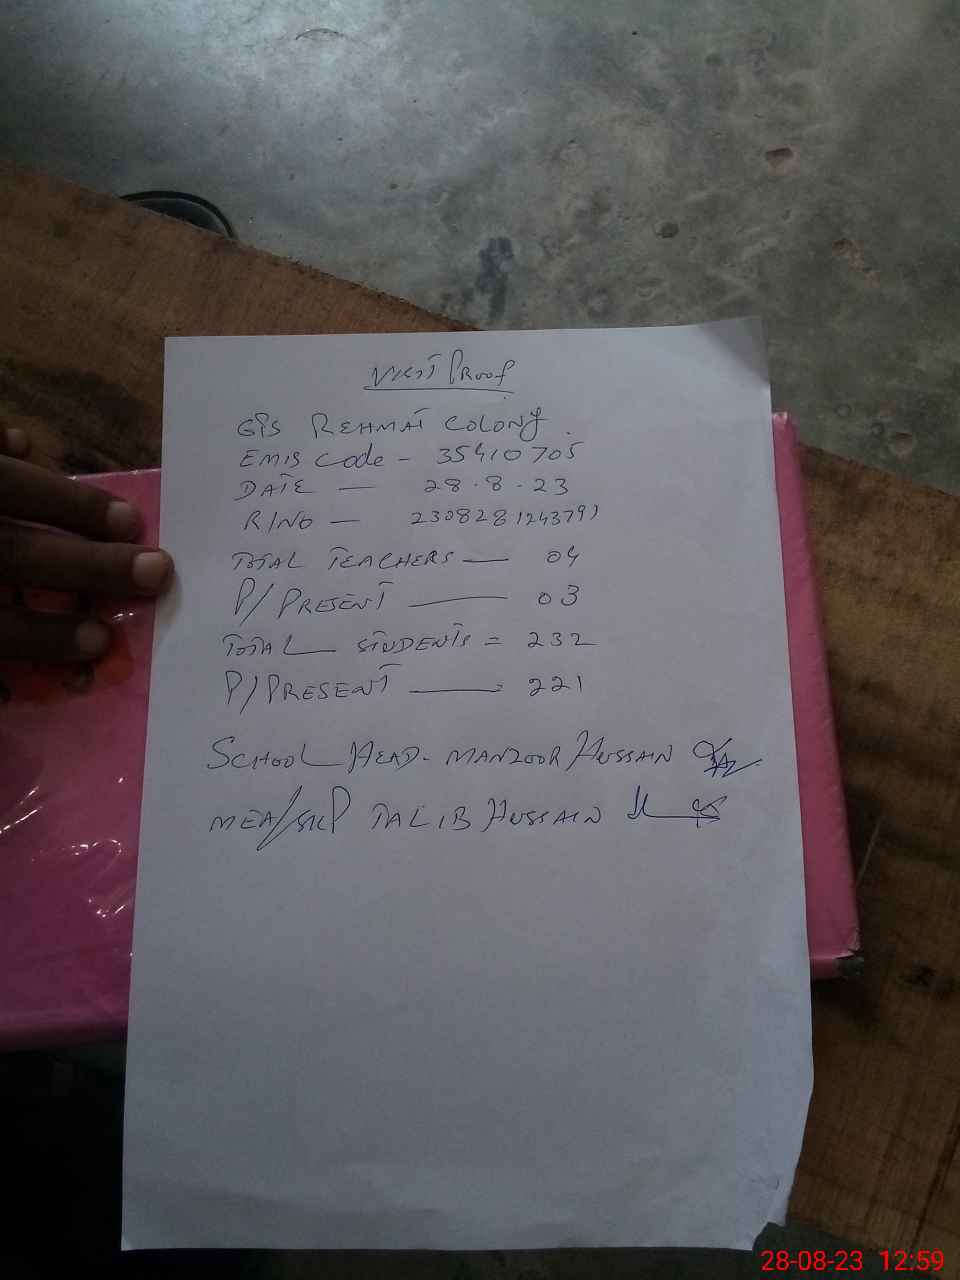 VISIT PROOF
GPS REHMAT COLONY.
EMIS Code - 35410705
DATE — 28.8.23
R/NO — 230828124379)
TOTAL TEACHERS — 04
P/PRESENT — 03
TOTAL STUDENTS = 232
P/PRESENT — 221
SCHOOL HEAD- MANZOOR HUSSAIN
MEA/ TALIB HUSSAIN
28-08-23 12:59